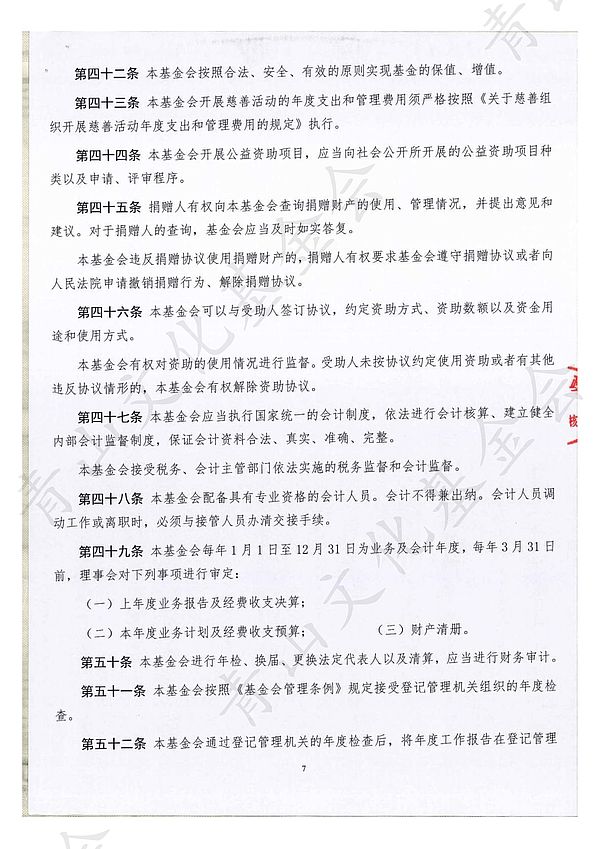 第四十二条 本基金会按照合法、安全、有效的原则实现基金的保值、增值。
第四十三条 本基金会开展慈善活动的年度支出和管理费用须严格按照《关于慈善组
织开展慈善活动年度支出和管理费用的规定》执行。
第四十四条 本基金会开展公益资助项目，应当向社会公开所开展的公益资助项目种
类以及申请、评审程序。
第四十五条 捐赠人有权向本基金会查询捐赠财产的使用、管理情况，并提出意见和
建议。对于捐赠人的查询，基金会应当及时如实答复。
本基金会违反捐赠协议使用捐赠财产的，捐赠人有权要求基金会遵守捐赠协议或者向
人民法院申请撤销捐赠行为、解除捐赠协议。
第四十六条 本基金会可以与受助人签订协议，约定资助方式、资助数额以及资金用
途和使用方式。
本基金会有权对资助的使用情况进行监督。受助人未按协议约定使用资助或者有其他
违反协议情形的，本基金会有权解除资助协议。
第四十七条 本基金会应当执行国家统一的会计制度，依法进行会计核算、建立健全
内部会计监督制度，保证会计资料合法、真实、准确、完整。
本基金会接受税务、会计主管部门依法实施的税务监督和会计监督。
第四十八条 本基金会配备具有专业资格的会计人员。会计不得兼出纳。会计人员调
动工作或离职时，必须与接管人员办清交接手续。
第四十九条 本基金会每年 1 月 1 日至 12 月 31 日为业务及会计年度，每年 3 月 31 日
前，理事会对下列事项进行审定：
（一）上年度业务报告及经费收支决算；
（二）本年度业务计划及经费收支预算； （三）财产清册。
第五十条 本基金会进行年检、换届、更换法定代表人以及清算，应当进行财务审计。
第五十一条 本基金会按照《基金会管理条例》规定接受登记管理机关组织的年度检
查。
第五十二条 本基金会通过登记管理机关的年度检查后，将年度工作报告在登记管理
7
青山文化基金会
青山文化基金会
核